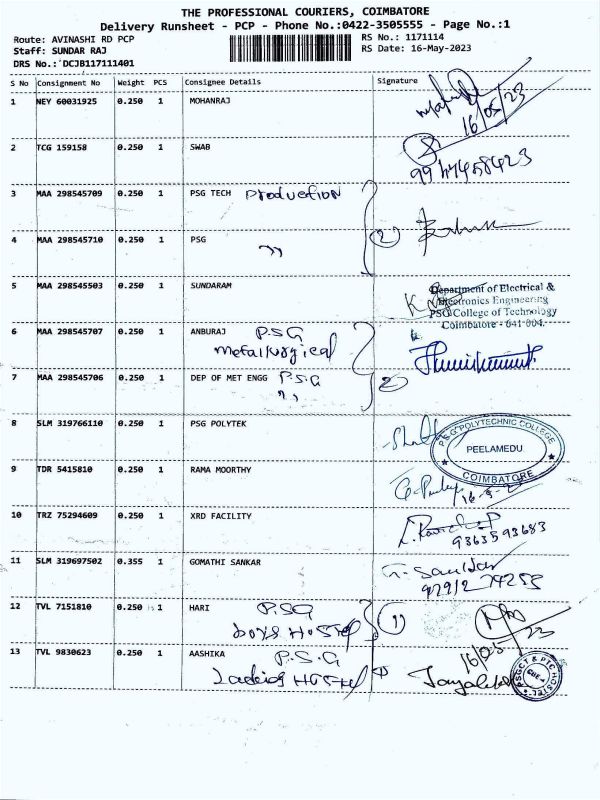 THE PROFESSIONAL COURIERS, COIMBATORE
Delivery Runsheet - PCP - Phone No.:0422-3505555 - Page No.:1
Route: AVINASHI RD PCP RS No.: 1171114
Staff: SUNDAR RAJ RS Date: 16-May-2023
DRS No.: DCJB117111401
S No Consignment No Weight PCS Consignee Details Signature
1 NEY 60031925 0.250 1 MOHANRAJ
16/05/23
2 TCG 159158 0.250 1 SWAB
3 MAA 298545709 0.250 1 PSG TECH Production
4 MAA 298545710 0.250 1 PSG " (2)
5 MAA 298545503 0.250 1 SUNDARAM
Department of Electrical &
Electronics Engineering
PSG College of Technology
Coimbatore - 641 004.
6 MAA 298545707 0.250 1 ANBURAJ P.S.G
Metallurgical
7 MAA 298545706 0.250 1 DEP OF MET ENGG P.S.G
" 2
8 SLM 319766110 0.250 1 PSG POLYTEK
P S G POLYTECHNIC COLLEGE
PEELAMEDU
COIMBATORE
9 TDR 5415810 0.250 1 RAMA MOORTHY
10 TRZ 75294609 0.250 1 XRD FACILITY
9363593683
11 SLM 319697502 0.355 1 GOMATHI SANKAR
12 TVL 7151810 0.250 1 HARI P.SG
boys Hostel
16/05 23
13 TVL 9830623 0.250 1 AASHIKA P.S.G
Ladies Hostel
PSGCT & PTC HOSTEL